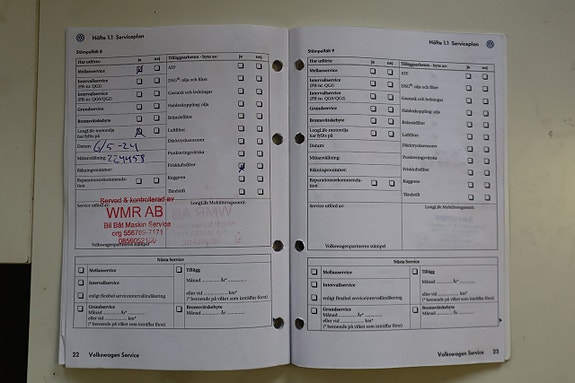 Häfte 1.1 Serviceplan
Stämpelfält 8
Har utförts: ja nej
Mellanservice
Intervallservice
(PR-nr. QG1)
Intervallservice
(PR-nr. QG0/QG2)
Grundservice
Bromsvätskebyte
LongLife-motorolja
har fyllts på
Datum: 6/5-24
Mätarställning: 224458
Fälkningsnummer:
Reparationsrekommenda-
tion
Tilläggsarbeten - byte av: ja nej
ATF
DSG®-olja och filter
Gastank och ledningar
Haldexkoppling: olja
Bränslefilter
Luftfilter
Dieselrutsnummer
Punkteringsvätska
Friskluftsfilter
Kuggrem
Tändstift
Service utförd av: LongLife Mobilitetsgaranti
Servad & kontrollerad av
WMR AB
Bil Båt Maskin Service
org 556789-7171
0856052100
Volkswagenpartnerns stämpel
Nästa Service
Mellanservice
Intervallservice
enligt flexibel serviceintervallindikering
Grundservice
Månad år*
eller vid km*
(* beroende på vilket som inträffar först)
Tillägg
Månad år*
eller vid km*
(* beroende på vilket som inträffar först)
Bromsvätskebyte
Månad år*
22 Volkswagen Service
Häfte 1.1 Serviceplan
Stämpelfält 9
Har utförts: ja nej
Mellanservice
Intervallservice
(PR-nr. QG1)
Intervallservice
(PR-nr. QG0/QG2)
Grundservice
Bromsvätskebyte
LongLife-motorolja
har fyllts på
Datum:
Mätarställning:
Reparationsrekommenda-
tion
Tilläggsarbeten - byte av: ja nej
ATF
DSG®-olja och filter
Gastank och ledningar
Haldexkoppling: olja
Bränslefilter
Luftfilter
Punkteringsvätska
Friskluftsfilter
Kuggrem
Tändstift
Service utförd av: LongLife Mobilitetsgaranti
Volkswagenpartnerns stämpel
Nästa Service
Mellanservice
Intervallservice
enligt flexibel serviceintervallindikering
Grundservice
Månad år*
eller vid km*
(* beroende på vilket som inträffar först)
Tillägg
Månad år*
eller vid km*
(* beroende på vilket som inträffar först)
Bromsvätskebyte
Månad år*
Volkswagen Service 23